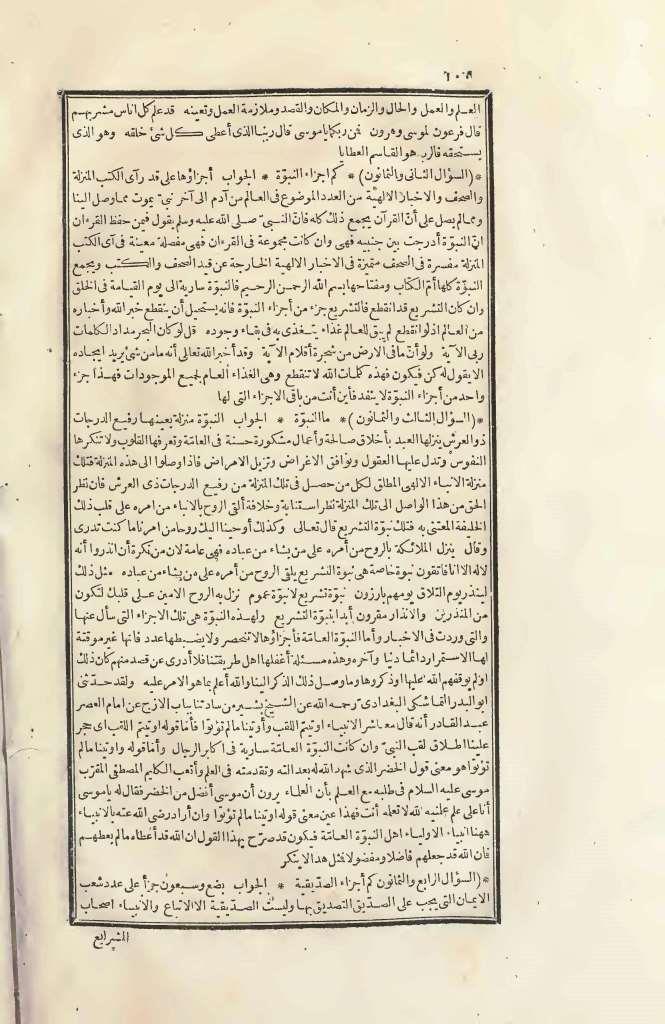 العلم والعمل والحال والزمان والمكان والقصد وملازمة العمل وتعينه قد علم كل اناس مشربهم
قال فرعون لموسى وهرون فمن ربكما ياموسى قال ربنا الذى أعطى كل شئ خلقه وهو الذى
يستحقه فالرب هو القاسم العطايا
*(السؤال الثانى والثمانون)* كم اجزاء النبوّة * الجواب أجزاؤها على قدر آى الكتب المنزلة
والصحف والاخبار الالهية من العدد الموضوع فى العالم من آدم الى آخر نبىّ يموت مما وصل الينا
ومما لم يصل على أنّ القرآن يجمع ذلك كله فانّ النبىّ صلى الله عليه وسلم يقول فيمن حفظ القرءان
انّ النبوّة أدرجت بين جنبيه فهى وان كانت مجموعة فى القرءان فهى مفصلة معينة فى آى الكتب
المنزلة مفسرة فى الصحف متميزة فى الاخبار الالهية الخارجة عن قيد الصحف والكتب ويجمع
النبوّة كلها أمّ الكتاب ومفتاحها بسم الله الرحمن الرحيم فالنبوّة سارية الى يوم القيامة فى الخلق
وان كان التشريع قد انقطع فالتشريع جزء من أجزاء النبوّة فانه يستحيل أن ينقطع خبر الله وأخباره
من العالم اذ لو انقطع لم يبق للعالم غذاء يتغذى به فى بقاء وجوده قل لو كان البحر مدادا لكلمات
ربى الآية ولو أنّ ما فى الارض من شجرة أقلام الآية وقد أخبر الله تعالى أنه ما من شئ يريد ايجاده
الا يقول له كن فيكون فهذه كلمات الله لا تنقطع وهى الغذاء العام لجميع الموجودات فهذا جزء
واحد من أجزاء النبوّة لا ينفد فأين أنت من باقى الاجزاء التى لها
*(السؤال الثالث والثمانون)* ما النبوّة * الجواب النبوّة منزلة يعينها رفيع الدرجات
ذو العرش ينزلها العبد بأخلاق صالحة وأعمال مشكورة حسنة فى العامّة وتعرفها القلوب ولا تنكرها
النفوس وتدل عليها العقول وتوافق الاغراض وتزيل الامراض فاذا وصلوا الى هذه المنزلة فتلك
منزلة الانباء الالهى المطلق لكل من حصل فى تلك المنزلة من رفيع الدرجات ذى العرش فان نظر
الحق من هذا الواصل الى تلك المنزلة نظر استنابة وخلافة ألقى الروح بالانباء من امره على قلب ذلك
الخليفة المعتنى به فتلك نبوّة التشريع قال تعالى وكذلك أوحينا اليك روحا من امرنا ما كنت تدرى
وقال ينزل الملائكة بالروح من أمره على من يشاء من عباده فهى عامة لان من نكرة أن انذروا أنه
لا اله الا انا فاتقون نبوة خاصة هى نبوة التشريع يلقى الروح من أمره على من يشاء من عباده مثل ذلك
لينذر يوم التلاق يومهم بارزون نبوّة تشريع لا نبوّة عموم نزل به الروح الامين على قلبك لتكون
من المنذرين والانذار مقرون أبدا بنبوّة التشريع ولهذه النبوّة هى تلك الاجزاء التى سأل عنها
والتى وردت فى الاخبار وأما النبوّة العامّة فأجزاؤها لا تنحصر ولا يضبطها عدد فانها غير موقتة
لها الاستمرار دائما دنيا وآخره وهذه مسئلة أغفلها اهل طريقتنا فلا أدرى عن قصد منهم كان ذلك
اولم يوقفهم الله عليها او ذكروها وما وصل ذلك الذكر الينا والله أعلم بما هو الامر عليه ولقد حدّثنى
ابو البدر التماشكى البغدادى رحمه الله عن الشيخ بشير من ساداتنا بباب الازج عن امام العصر
عبد القادر أنه قال معاشر الانبياء اوتيتم اللقب وأوتينا ما لم تؤتوا فأما قوله اوتيتم اللقب اى حجر
علينا اطلاق لقب النبىّ وان كانت النبوّة العامّة سارية فى اكابر الرجال وأما قوله واوتينا ما لم
تؤتوا هو معنى قول الخضر الذى شهد الله له بعدالته وتقدمته فى العلم وأتعب الكليم المصطفى المقرّب
موسى عليه السلام فى طلبه مع العلم بأن العلماء يرون أن موسى أفضل من الخضر فقال له ياموسى
أنا على علم علمنيه الله لا تعلمه أنت فهذا عين معنى قوله اوتينا ما لم تؤتوا وان أراد رضى الله عنه بالانبياء
ههنا انبياء الاولياء اهل النبوّة العامّة فيكون قد صرّح بهذا القول ان الله قد أعطاه ما لم يعطهم
فان الله قد جعلهم فاضلا ومفضولا فمثل هذا لا ينكر
*(السؤال الرابع والثمانون كم أجزاء الصدّيقية * الجواب بضع وسبعون جزأ على عدد شعب
الايمان التى يجب على الصدّيق التصديق بها وليست الصدّيقية الا لاتباع والانبياء اصحاب
الشرايع